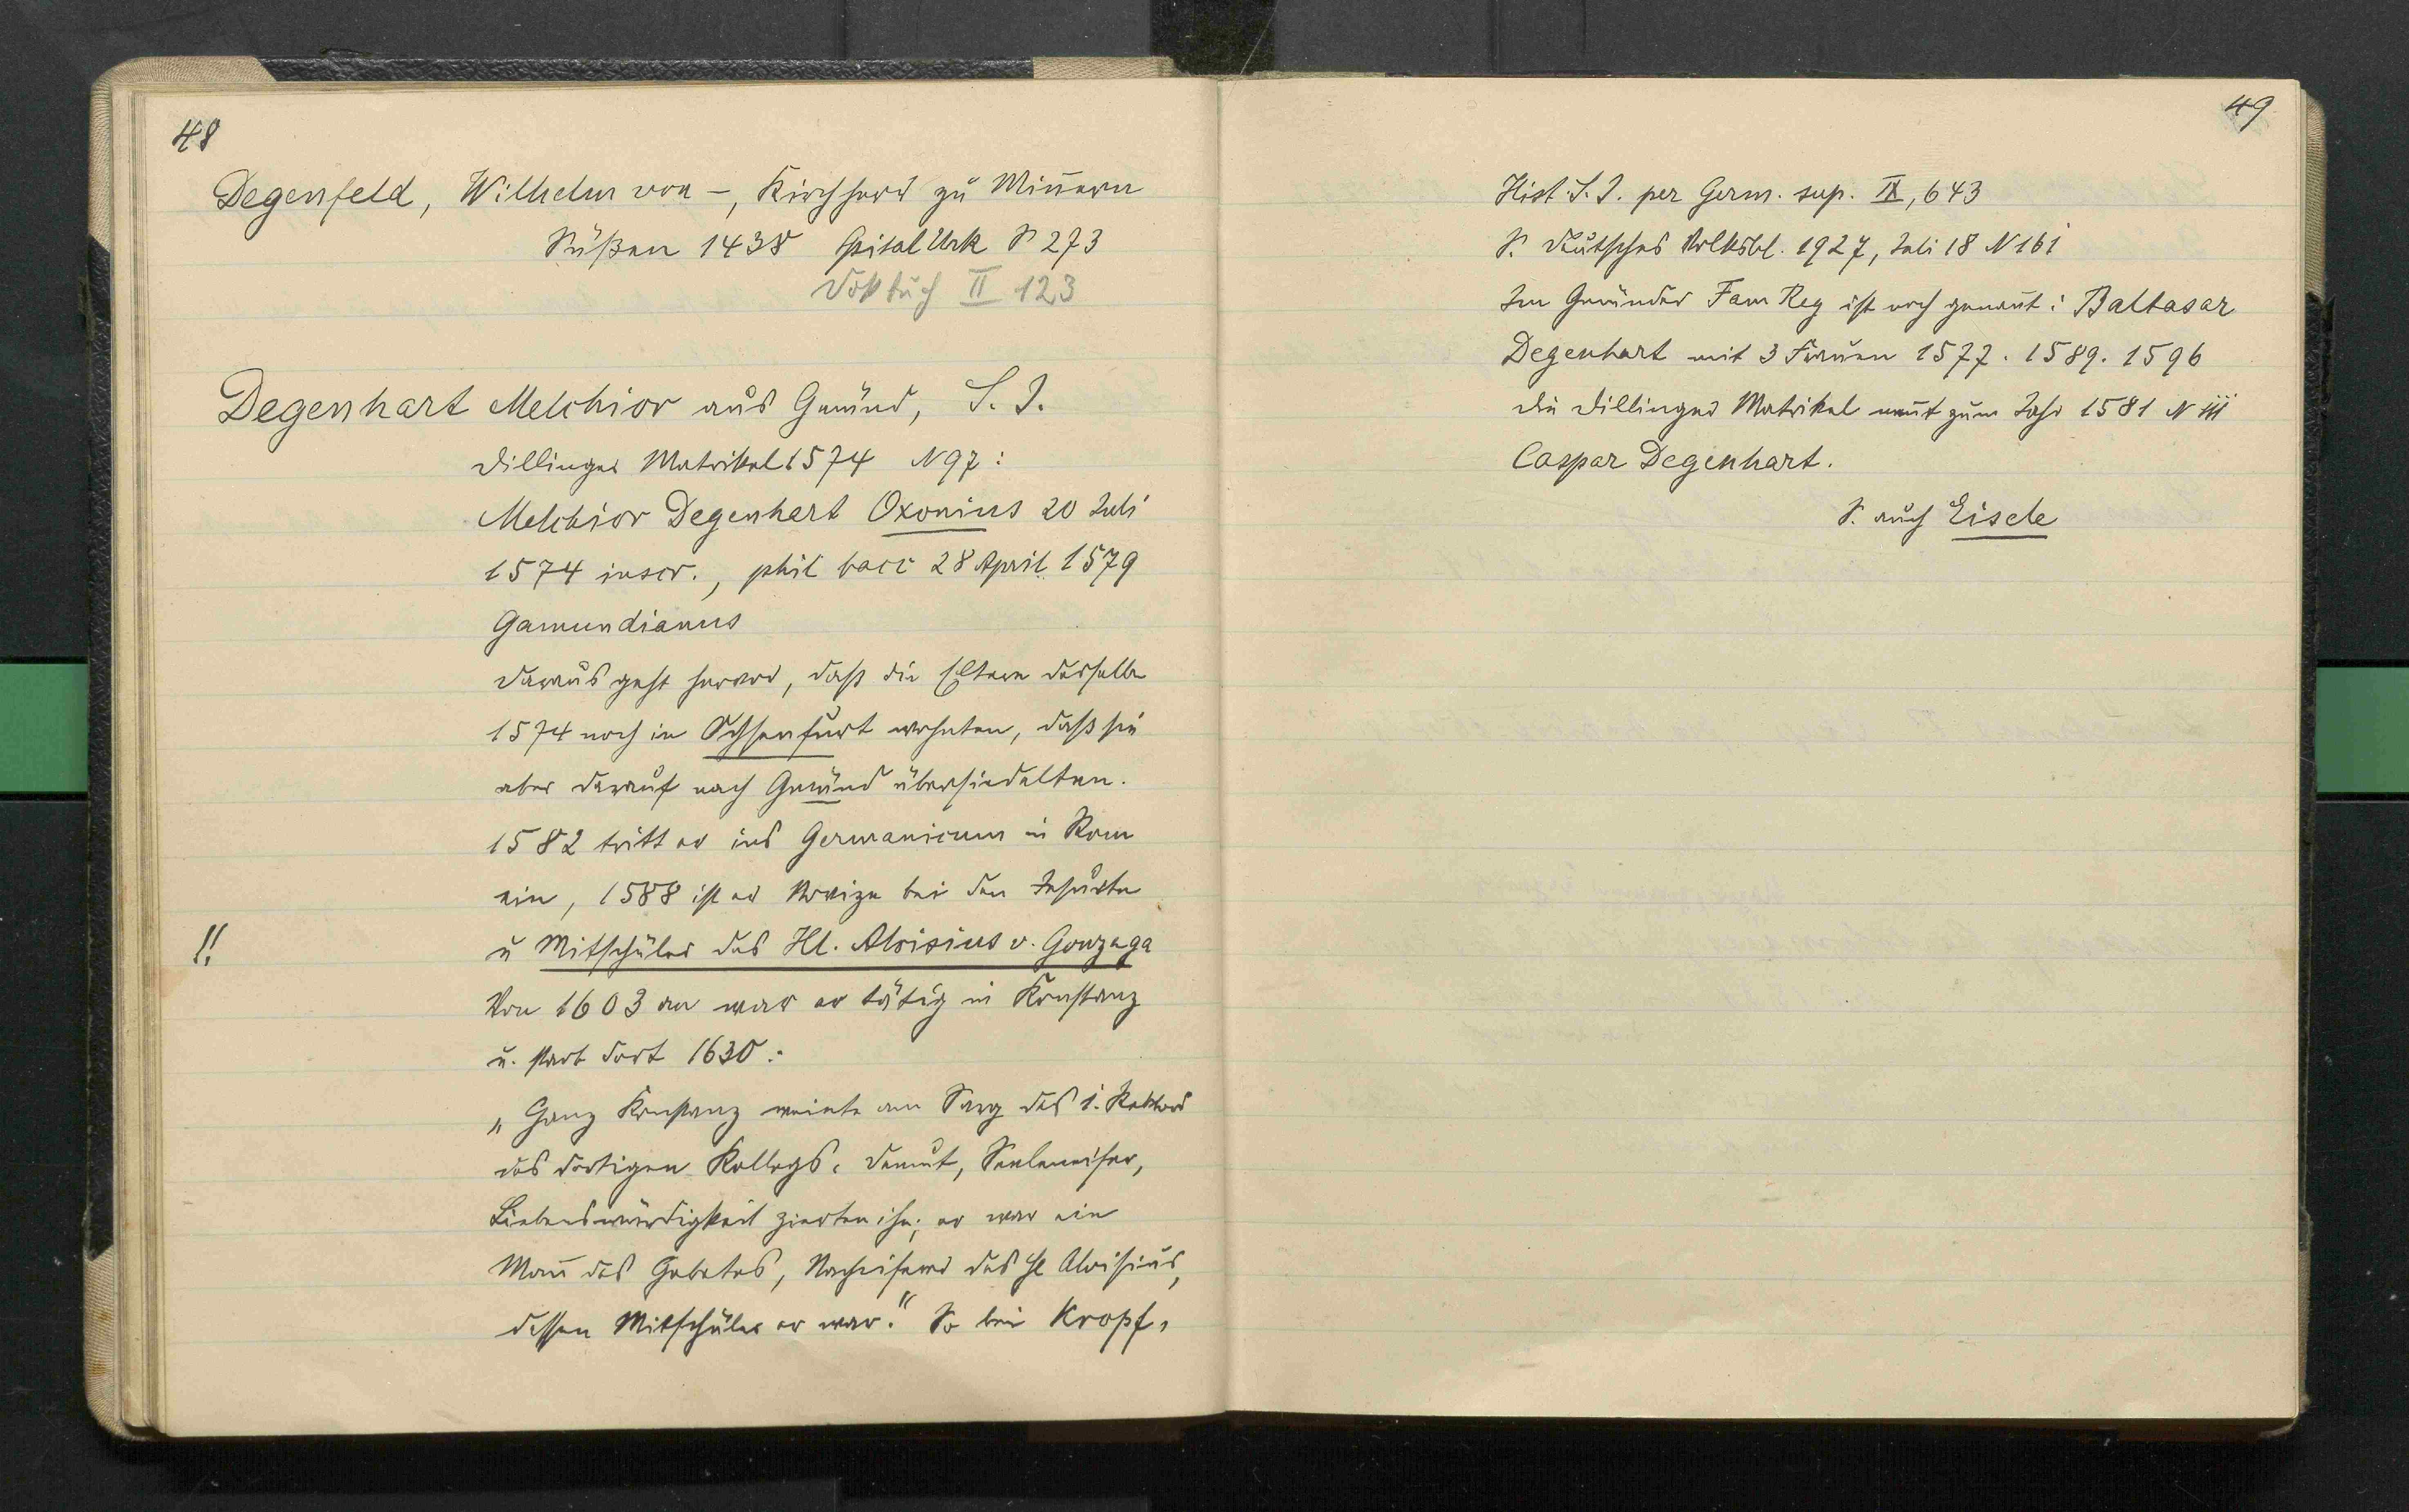 48
Degenfeld, Wilhelm von –, Kirchherr zu Minnern
Süßen 1438 Spital Urk S 273
II 123
Degenhart Melchior aus Gmünd, S. J.
Dillinger Matrikel 1574 N 97:
Melchior Degenhart Oxonius 20 Juli
1574 inscr., phil bacc 28 April 1579
Gamundianus
Daraus geht hervor, daß die Eltern desselben
1574 noch in Ochsenfurt wohnten, daß sie
aber darauf nach Gmünd übersiedelten.
1582 tritt er ins Germanicum in Rom
ein, 1588 ist er Novize bei den Jesuiten
!! u Mitschüler des Hl. Aloisius v. Gonzaga
Von 1603 an war er tätig in Konstanz
u. starb dort 1630:
„Ganz Konstanz weinte am Sarg des 1. Rektors
des dortigen Kollegs. Demut, Seeleneifer,
Liebenswürdigkeit zierten ihn; er war ein
Mann des Gebetes, Nacheiferer des hl Aloisius,
dessen Mitschüler er war." So bei Kropf,
49
Hist. S. J. per Germ. sup. IX, 643
S. Deutsches Volksbl. 1927, Juli 18 N 161
Im Gmünder Fam Reg ist noch genannt: Baltasar
Degenhart mit 3 Frauen 1577. 1589. 1596
Die Dillinger Matrikel nennt zum Jahr 1581 N 111
Caspar Degenhart.
S. auch Eisele